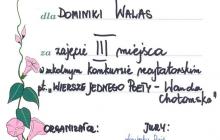 dla DOMINIKI WALAS
za zajęcie III miejsca
w szkolnym konkursie recytatorskim
pt. „WIERSZE JEDNEGO POETY - Wanda
Chotomska"
ORGANIZATOR: JURY: